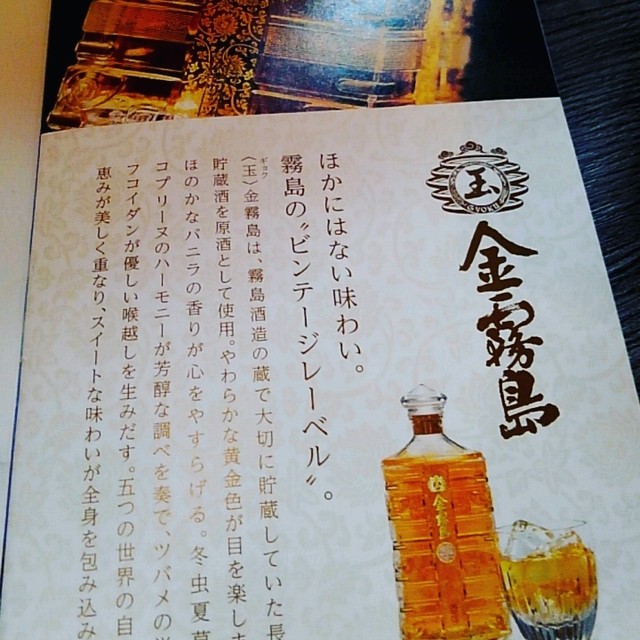 玉
金霧島
ほかにはない味わい。
霧島の“ビンテージレーベル”。
ギョク
〈玉〉金霧島は、霧島酒造の蔵で大切に貯蔵していた長
貯蔵酒を原酒として使用。やわらかな黄金色が目を楽しま
ほのかなバニラの香りが心をやすらげる。冬虫夏草
コプリーヌのハーモニーが芳醇な調べを奏で、ツバメの
フコイダンが優しい喉越しを生みだす。五つの世界の自
恵みが美しく重なり、スイートな味わいが全身を包み込み
金霧島